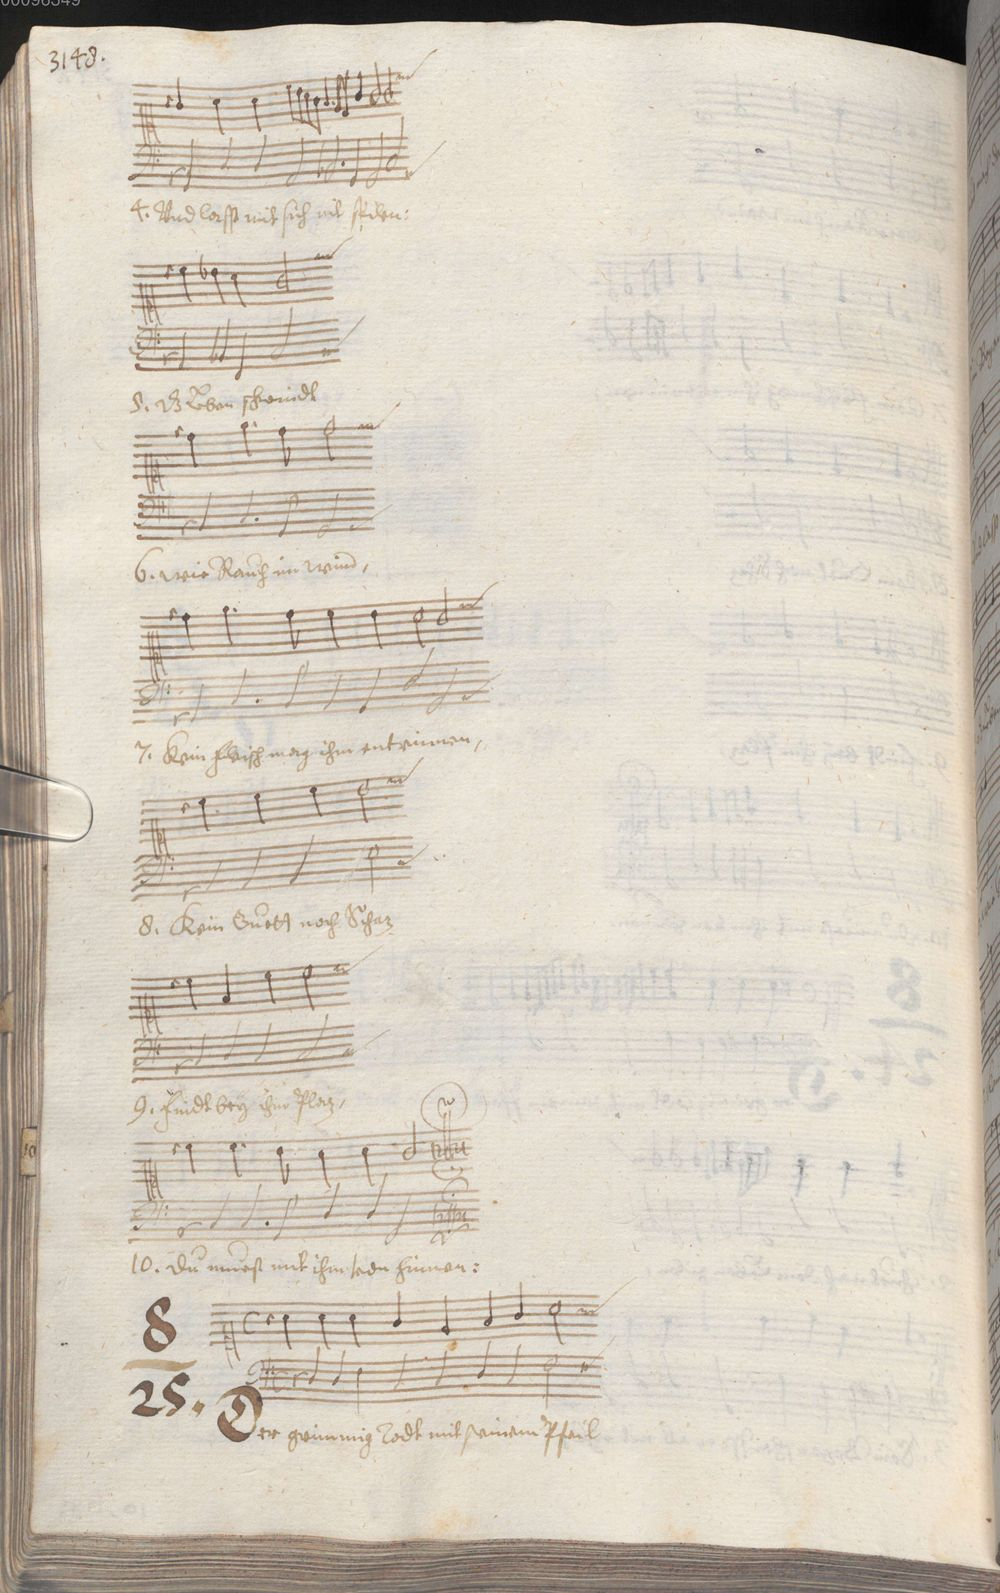 00096349
3148.
4. Und lasst mit sich nit spilen:
5. Dz Leben schwindt
6. wie Rauch im wind,
7. Kein fleisch mag ihm entrinnen,
8. Kein Guett noch Schaz
9. findt bey ihm Plaz,
10. Du muest mit ihm von hinnen:
8
25. Der grimmig Todt mit seinem Pfeil